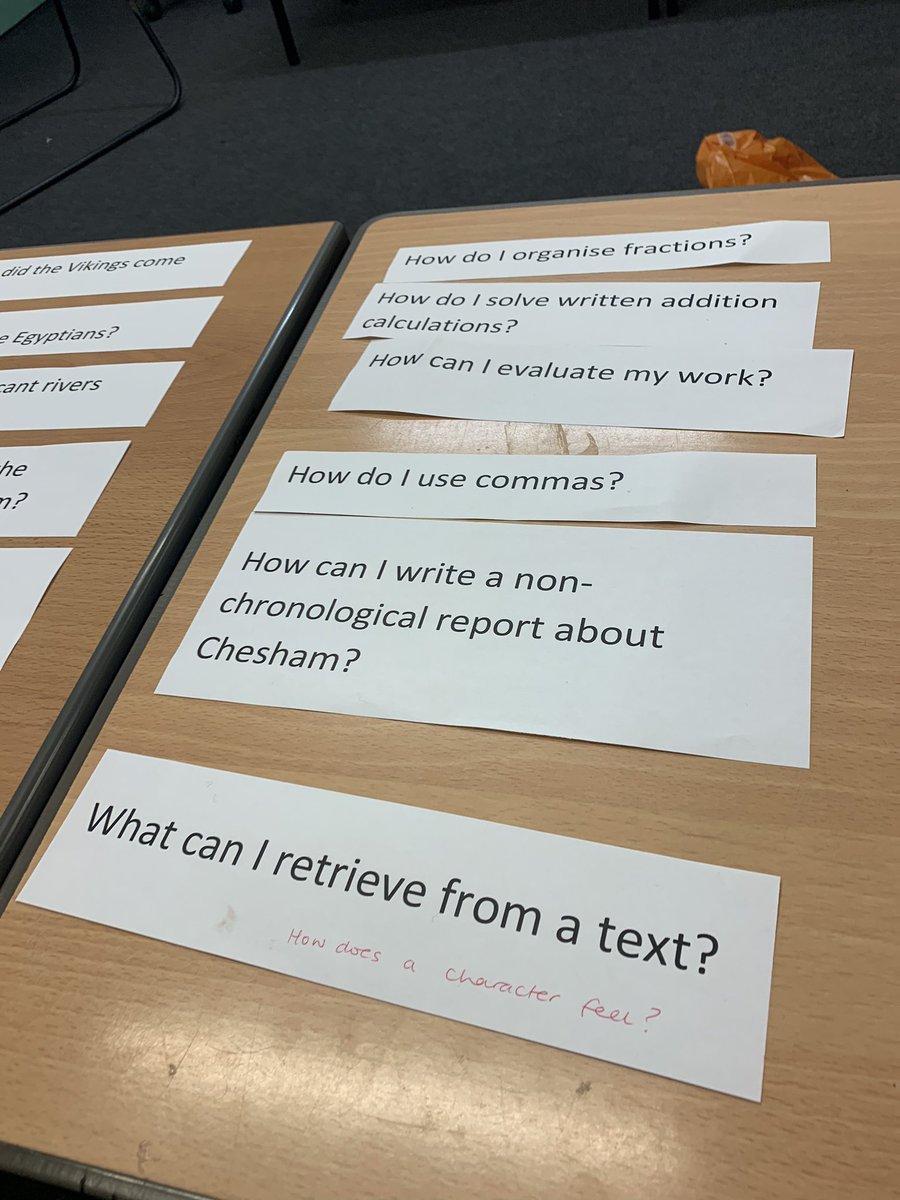 did the Vikings come
Egyptians?
rivers
How do I organise fractions?
How do I solve written addition
calculations?
How can I evaluate my work?
How do I use commas?
How can I write a non-
chronological report about
Chesham?
What can I retrieve from a text?
How does a character feel?